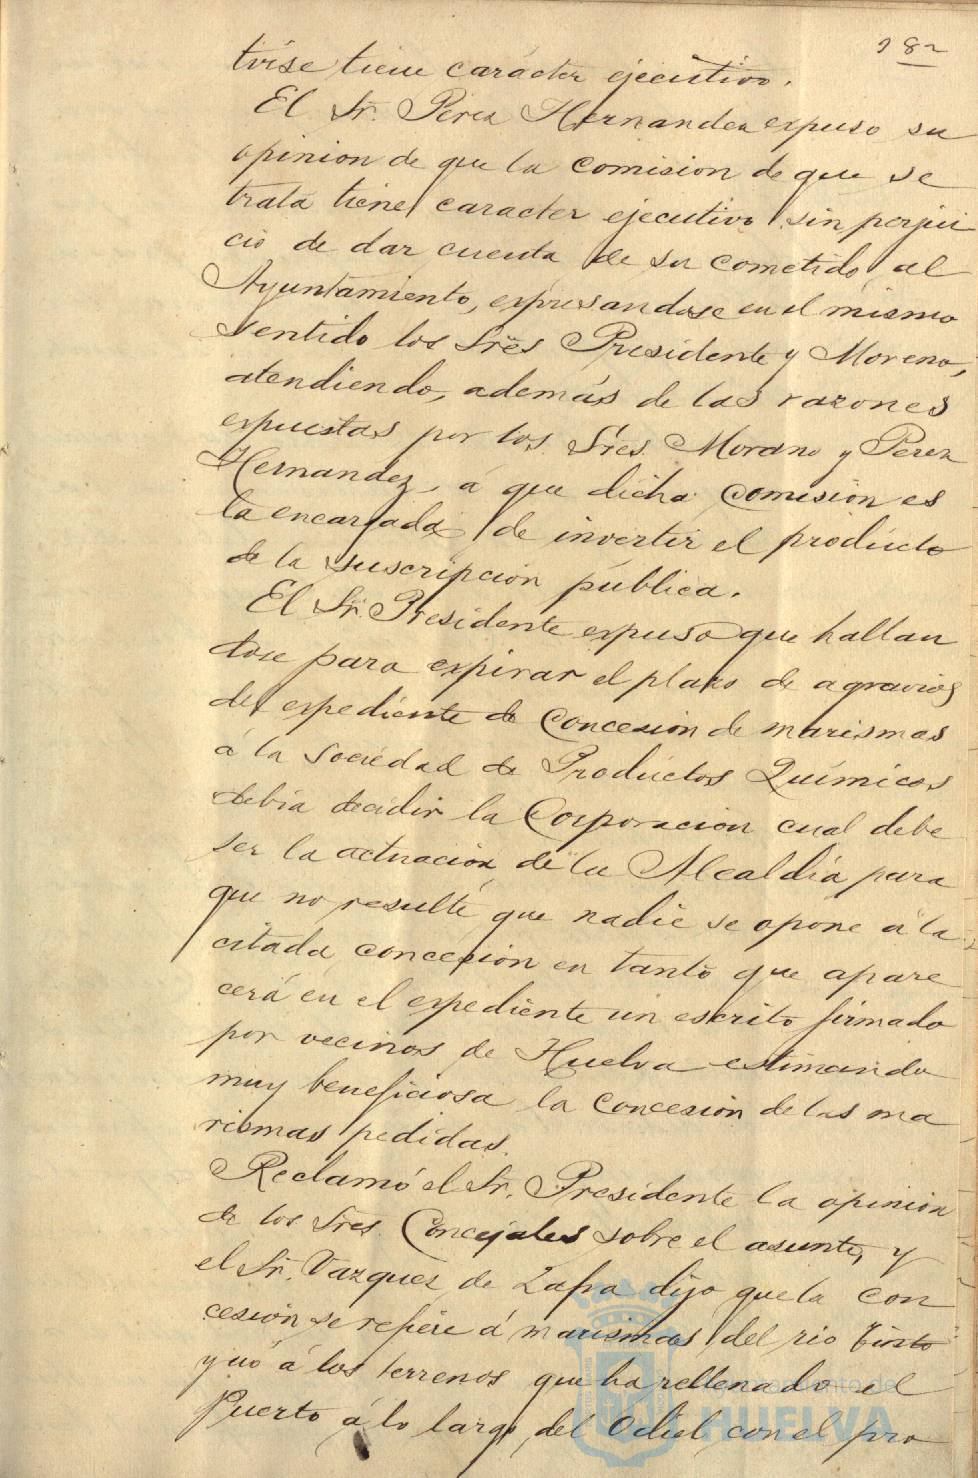 182
tríse tiene carácter ejecutivo.
El Sr. Perez Hernandez expuso su
opinion de que la comision de que se
trata tiene caracter ejecutivo sin perjui
cio de dar cuenta de su cometido al
Ayuntamiento, expresandose en el mismo
sentido los Sres Presidente y Moreno,
atendiendo, además de las razones
expuestas por los Sres. Moreno y Perez
Hernandez, á que dicha comisión es
la encargada de invertir el producto
de la suscripción pública.
El Sr. Presidente expuso que hallan
dose para expirar el plazo de agravios
del expediente de concesión de marismas
á la Sociedad de Productos Químicos
debia decidir la Corporacion cual debe
ser la actuación de la Alcaldía para
que no resulte que nadie se opone á la
citada concesion en tanto que apare
cerá en el expediente un escrito firmado
por vecinos de Huelva estimando
muy beneficiosa la concesión de las ma
rismas pedidas.
Reclamó el Sr. Presidente la opinion
de los Sres. Concejales sobre el asunto, y
el Sr. Vazquez de Zafra dijo que la con
cesión se refiere á marismas del rio Tinto
y nó á los terrenos que ha rellenado el
Puerto á lo largo del Odiel con el pro
Ayuntamiento de
HUELVA